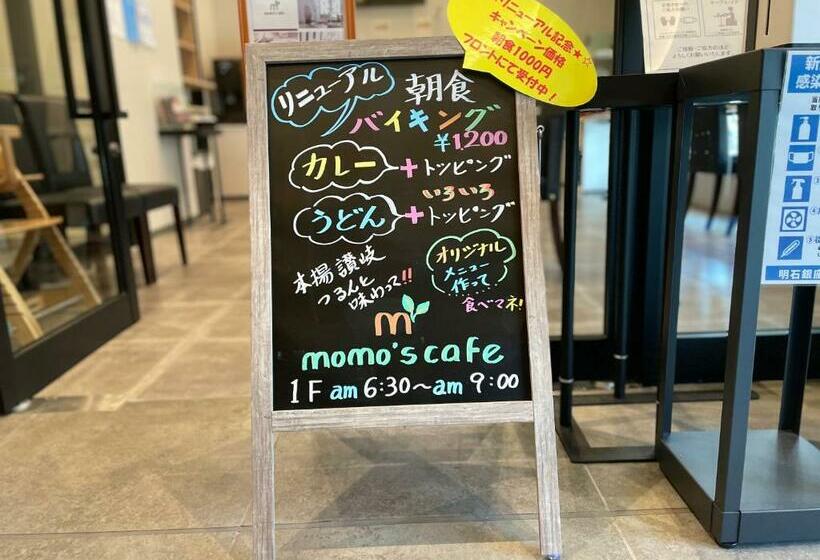 リニューアル記念★
キャンペーン価格
朝食1000円
フロントにて受付中！
リニューアル
朝食
バイキング
¥1,200
カレー＋トッピング
いろいろ
うどん＋トッピング
本場讃岐
つるんと
味わって!!
オリジナル
メニュー
作って
食べマネ!
m
momo's cafe
1F am 6:30〜am 9:00
新
感染
明石銀座